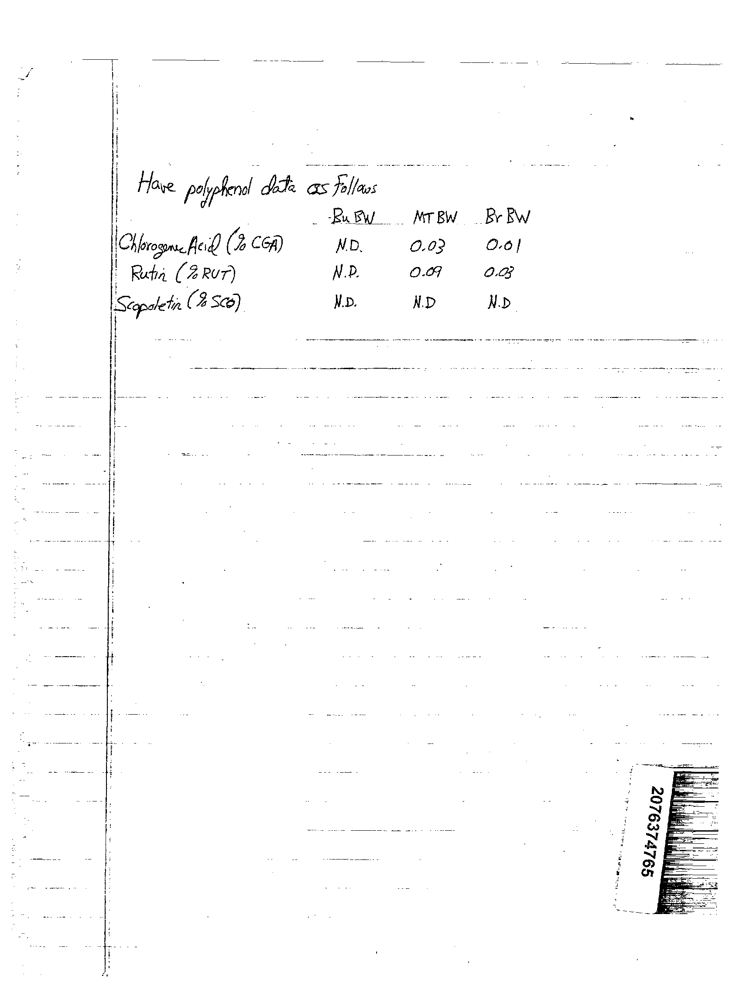 Have polyphenol data as follows
Bu BW MT BW Br BW
Chlorogenic Acid (% CGA) N.D. 0.03 0.01
Rutin (% RUT) N.D. 0.09 0.03
Scopoletin (% SCO) N.D. N.D N.D
2076374765